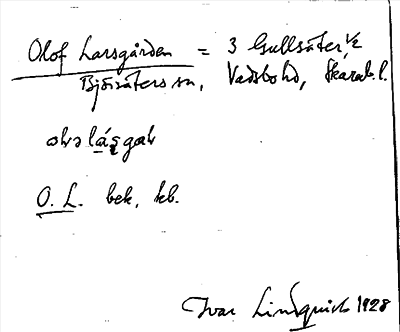 Olof Larsgården = 3 Gullsäter, 1/2
Björsäters sn, Vadsbo hd, Skarab. l.
O. L. bek. kb.
Ivar Lindquist 1928